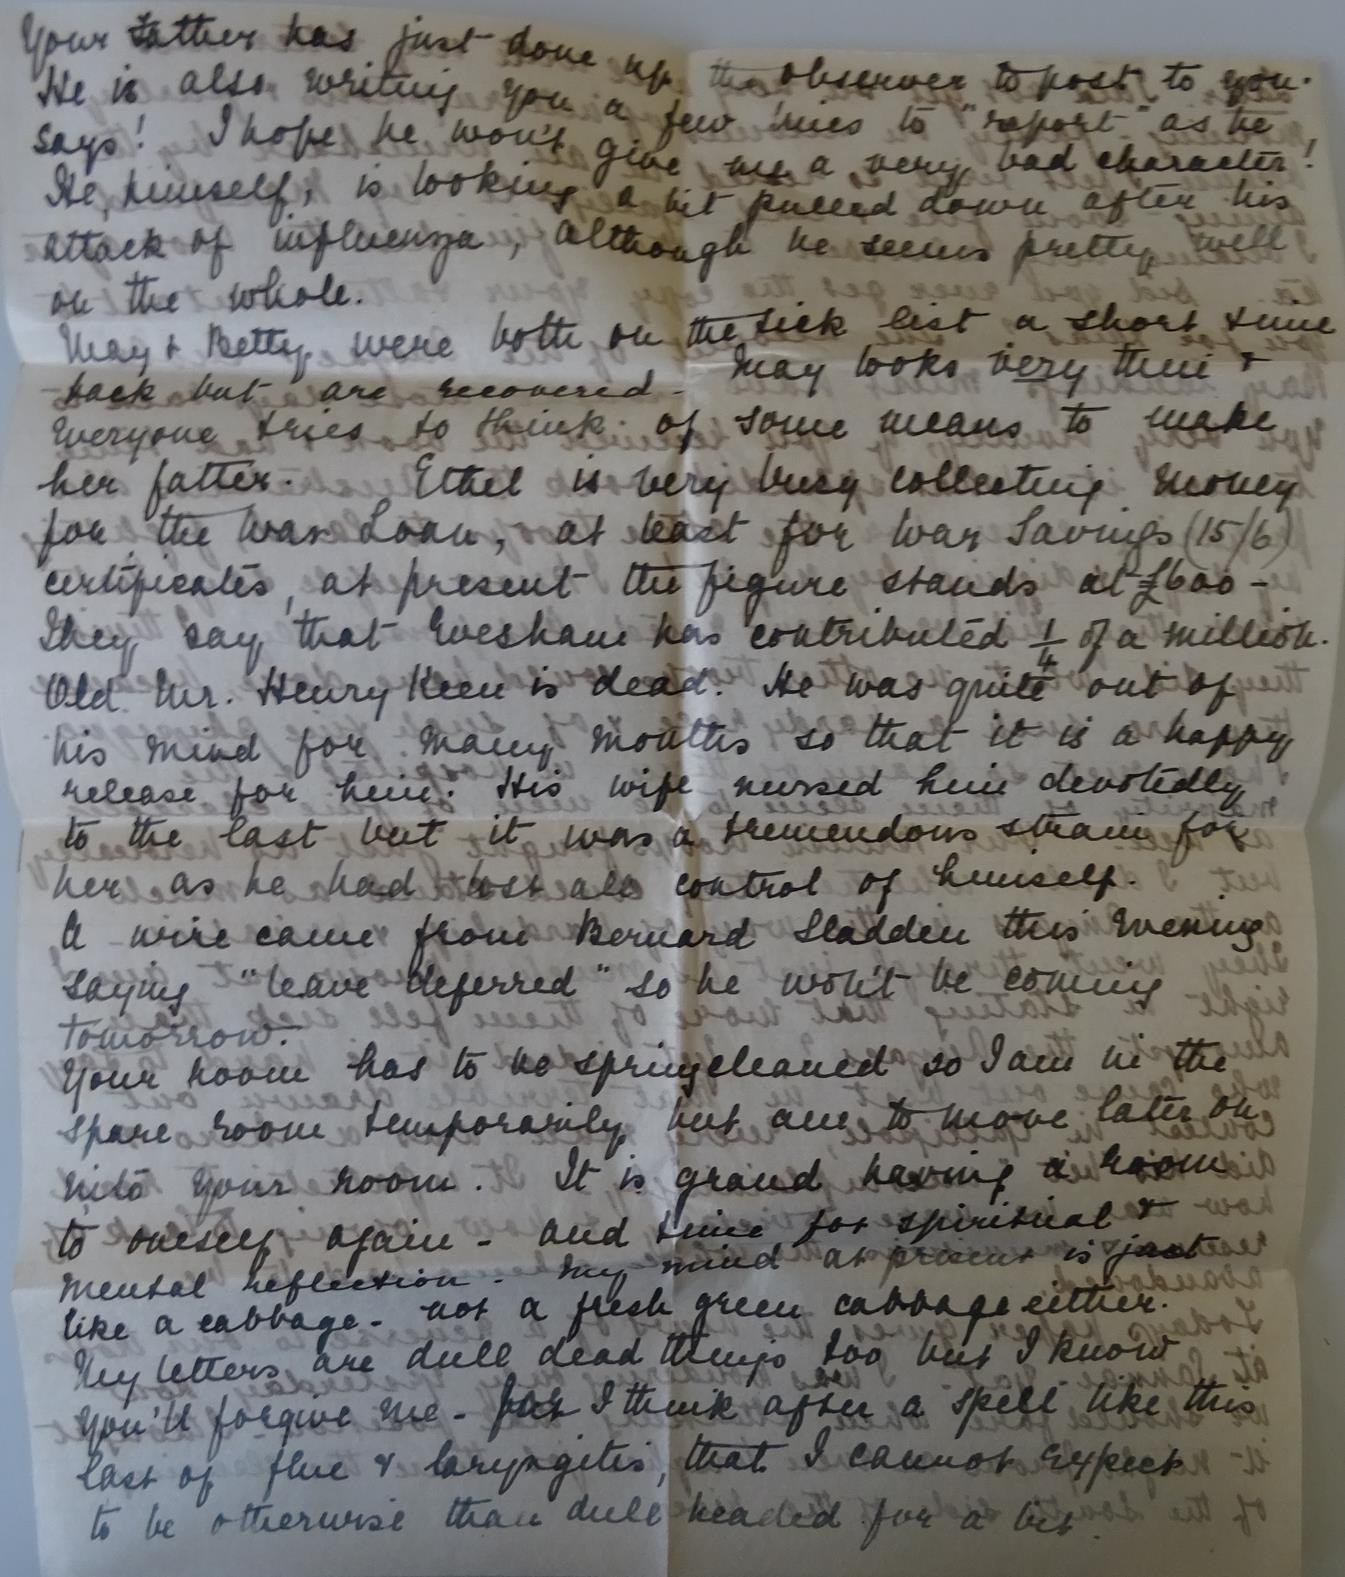 Your Father has just done up the Observer to post to you.
He is also writing you a few lines to "report" as he
says! I hope he won't give me a very bad character!
He, himself, is looking a bit pulled down after his
attack of influenza, although he seems pretty well
on the whole.
May & Betty were both on the sick list a short time
back but are recovered - May looks very thin &
everyone tries to think of some means to make
her fatter. Ethel is very busy collecting money
for the War Loan, at least for War Savings (15/6)
certificates, at present the figure stands at £600 -
They say that Evesham has contributed 1/4 of a million.
Old Mr. Henry Keen is dead. He was quite out of
his mind for many months so that it is a happy
release for him. His wife nursed him devotedly
to the last but it was a tremendous strain for
her as he had lost all control of himself.
A wire came from Bernard Sladden this evening
saying "leave deferred" so he won't be coming
tomorrow.
Your room has to be springcleaned so I am in the
spare room temporarily but am to move later on
into your room. It is grand having a room
to oneself again - and time for spiritual &
mental reflection - My mind at present is just
like a cabbage - not a fresh green cabbage either.
My letters are dull dead things too but I know
you'll forgive me - for I think after a spell like this
last of flue & laryngitis, that I cannot expect
to be otherwise than dull headed for a bit.